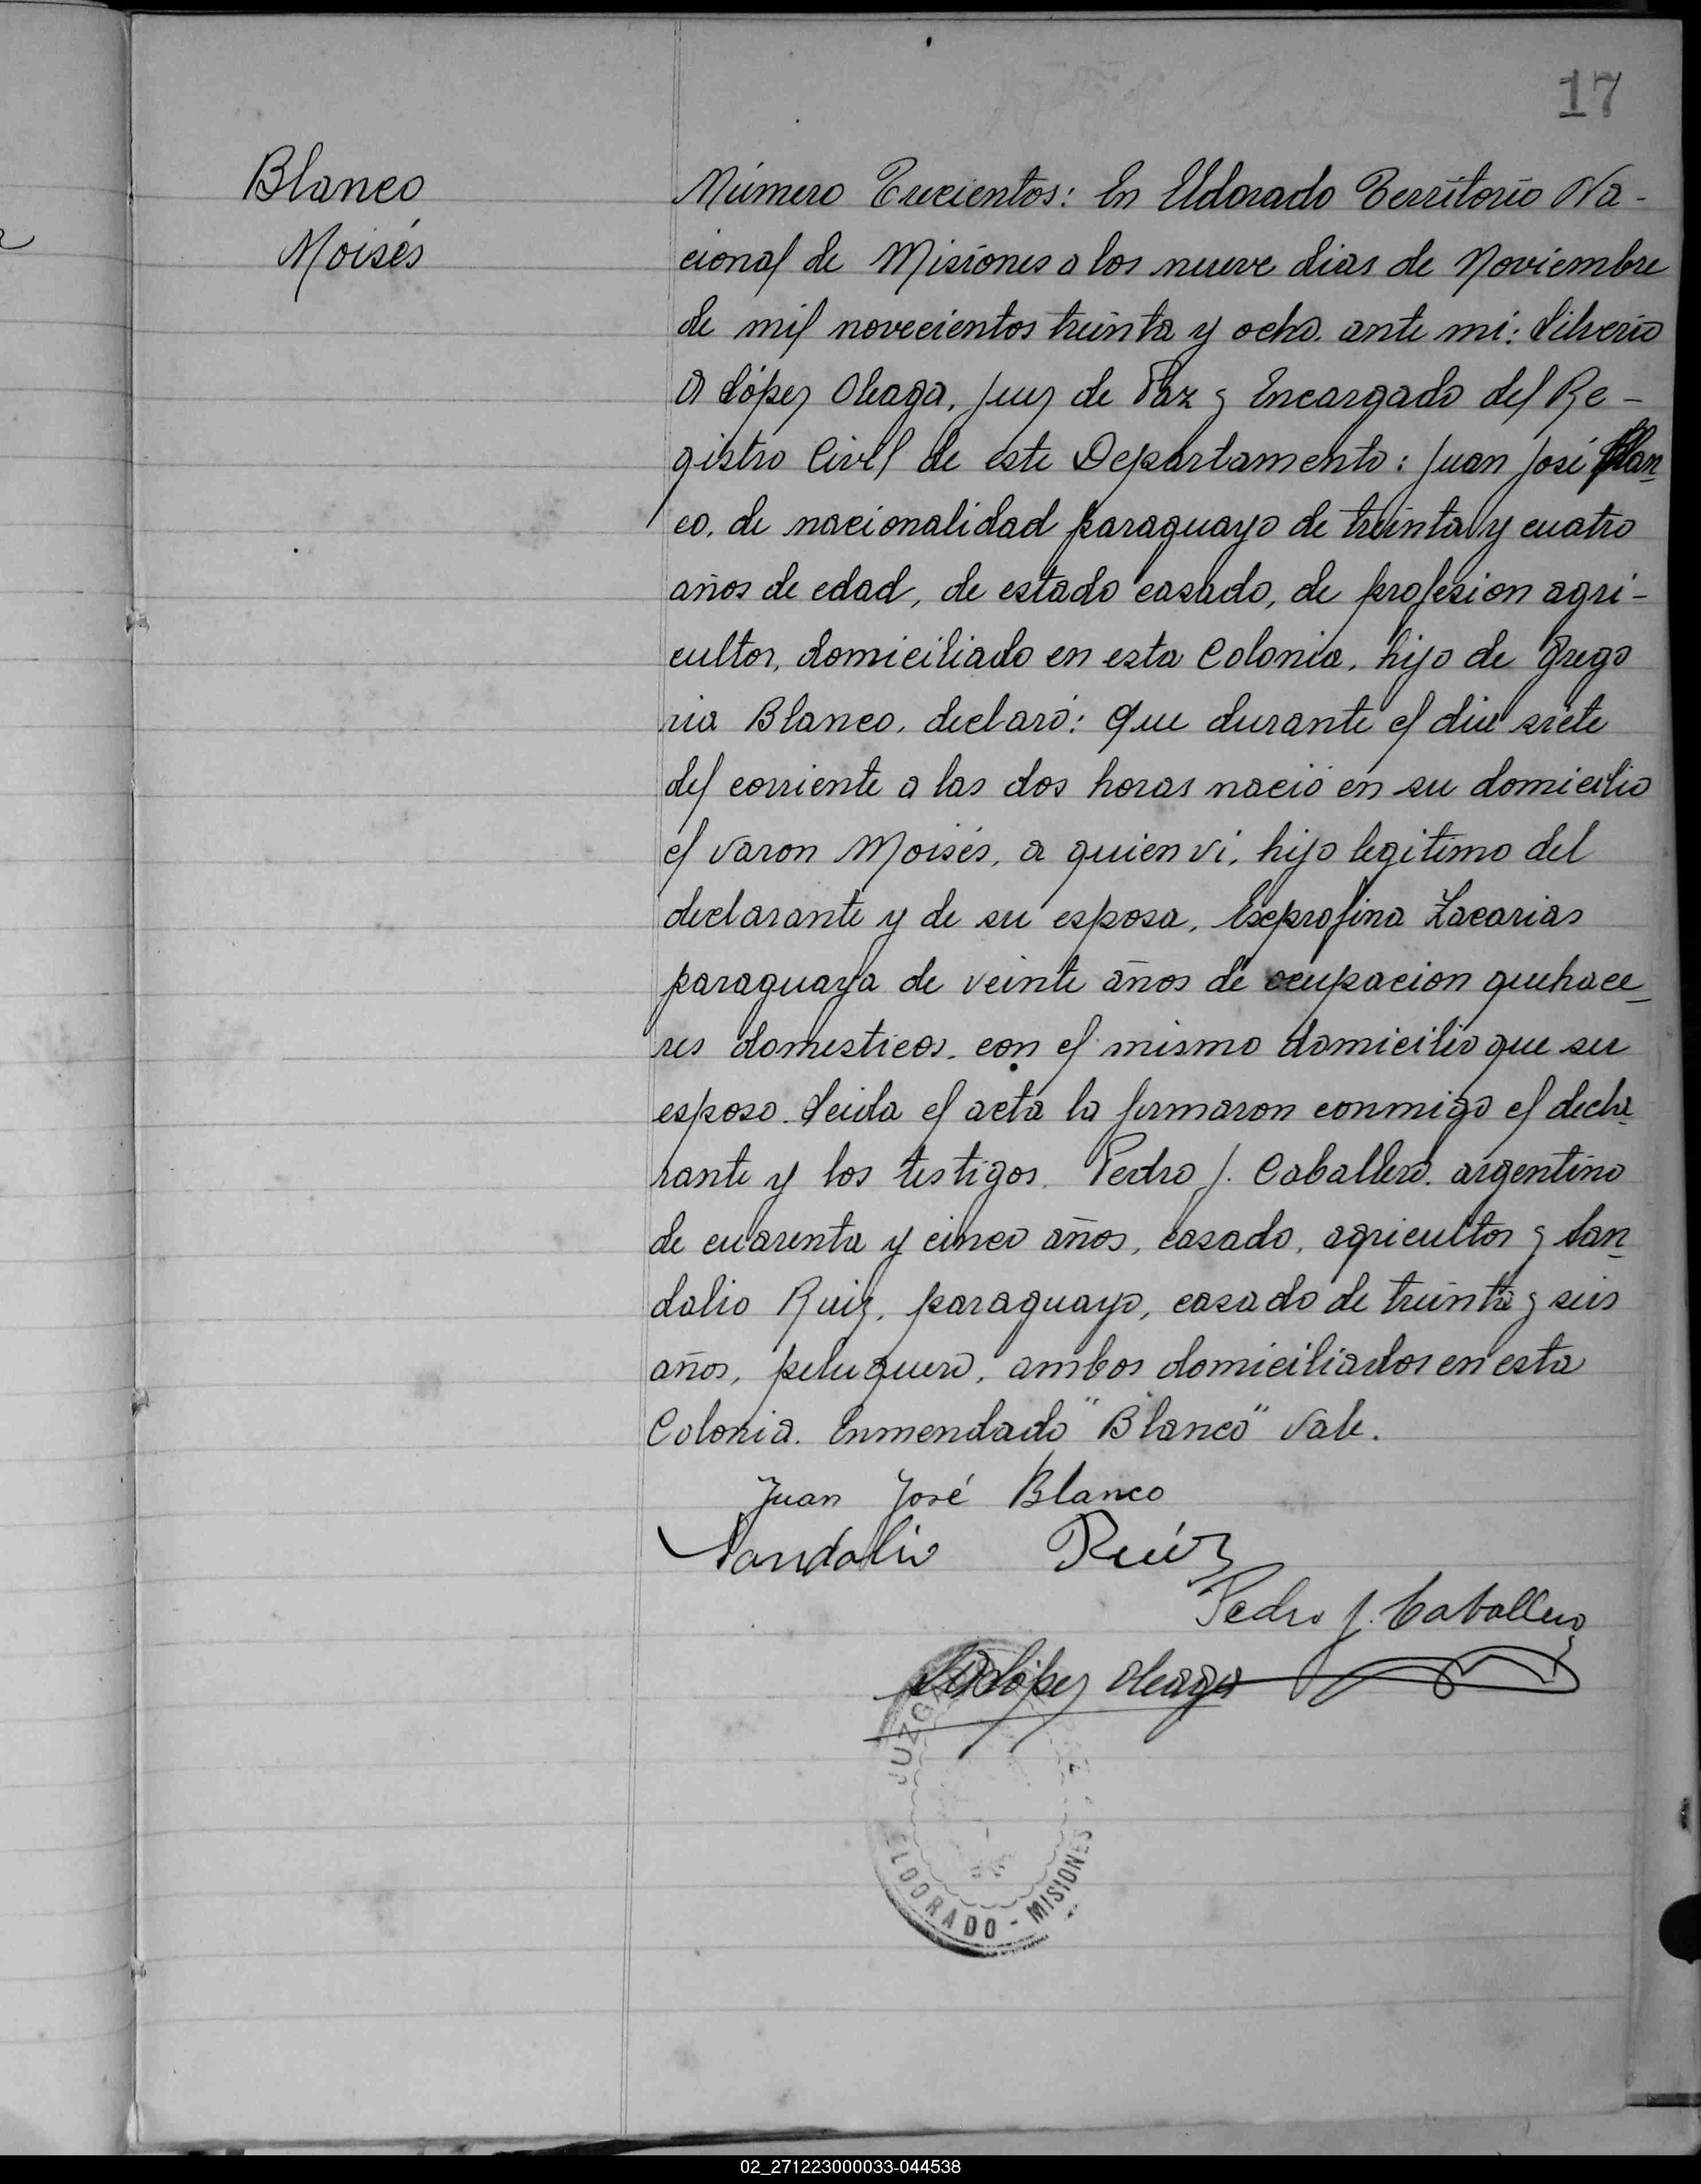 17
Blanco
Moisés
Número Trecientos: En Eldorado Territorio Na-
cional de Misiones a los nueve dias de Noviembre
de mil novecientos treinta y ocho. ante mi: Silverio
A López Oleaga, Juez de Paz y Encargado del Re-
gistro Civil de este Departamento: Juan José Blan
co, de nacionalidad paraguayo de treinta y cuatro
años de edad, de estado casado, de profesion agri-
cultor, domiciliado en esta Colonia, hijo de Grego
ria Blanco, declaró: Que durante el dia siete
del corriente a las dos horas nació en su domicilio
el varon Moisés, a quien vi, hijo legitimo del
declarante y de su esposa, Eseprofina Zacarias
paraguaya de veinte años de ocupacion quehace
res domesticos. con el mismo domicilio que su
esposo. Leida el acta la firmaron conmigo el decla
rante y los testigos. Pedro J. Caballero. argentino
de cuarenta y cinco años, casado, agricultor y San
dalio Ruiz, paraguayo, casado de treinta y seis
años, peluquero, ambos domiciliados en esta
Colonia. Enmendado "Blanco" Vale.
Juan José Blanco
Sandalio Ruíz
Pedro J. Caballero
López Oleaga
JUZGA
ELDORADO - MISIONES
02_271223000033-044538